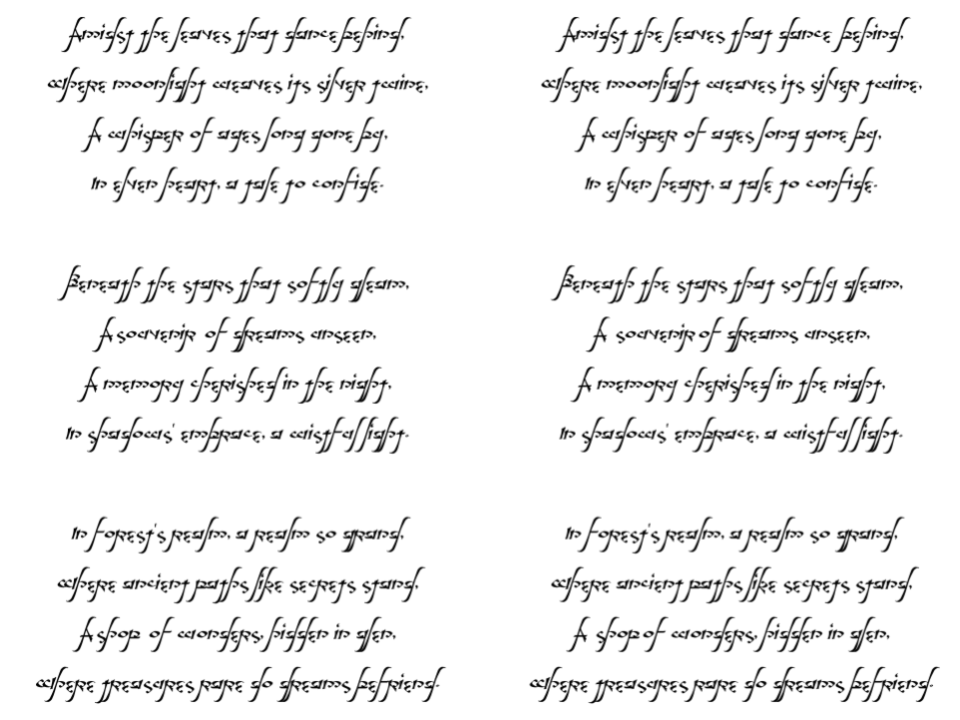 Amidst the leaves that dance behind,
Where moonlight weaves its silver twine,
A whisper of ages long gone by,
In elven heart, a tale to confide.
Beneath the stars that softly gleam,
A souvenir of dreams unseen,
A memory cherished in the night,
In shadows' embrace, a wistful light.
In forest's realm, a realm so grand,
Where ancient paths like secrets stand,
A shop of wonders, hidden in glen,
Where treasures rare do dreams befriend.
Amidst the leaves that dance behind,
Where moonlight weaves its silver twine,
A whisper of ages long gone by,
In elven heart, a tale to confide.
Beneath the stars that softly gleam,
A souvenir of dreams unseen,
A memory cherished in the night,
In shadows' embrace, a wistful light.
In forest's realm, a realm so grand,
Where ancient paths like secrets stand,
A shop of wonders, hidden in glen,
Where treasures rare do dreams befriend.